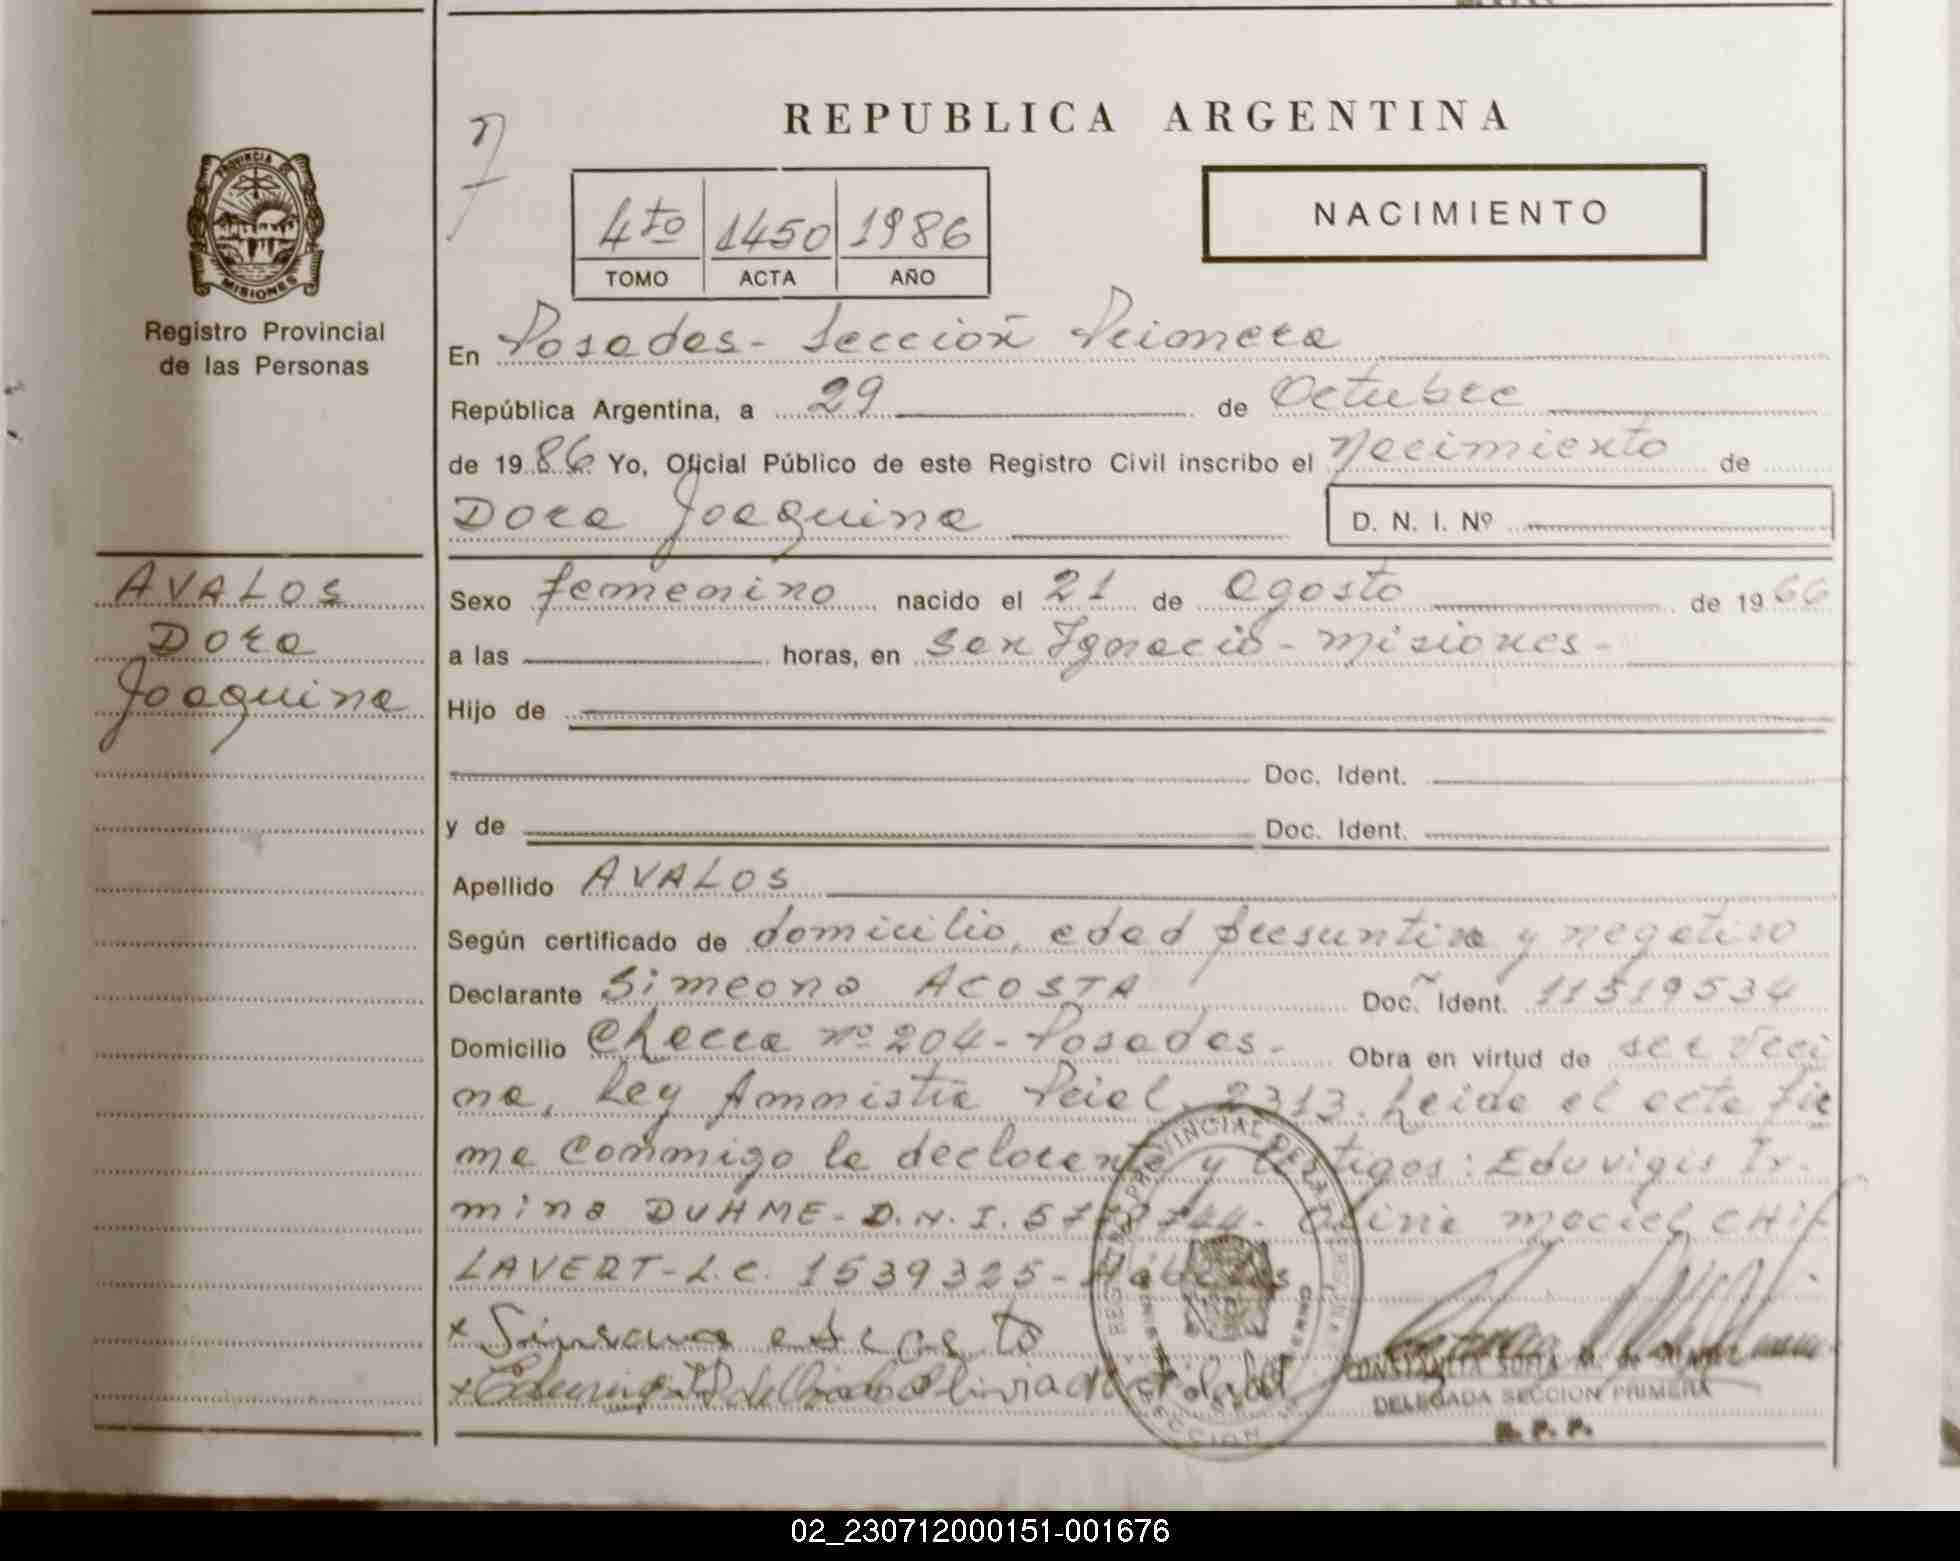 REPUBLICA ARGENTINA
PROVINCIA DE
MISIONES
Registro Provincial
de las Personas
4to 1450 1986
TOMO ACTA AÑO
NACIMIENTO
En Posadas - Sección Primera
República Argentina, a 29 de Octubre
de 1986 Yo, Oficial Público de este Registro Civil inscribo el Nacimiento de
Dora Joaquina D. N. I. Nº
AVALOS
Dora
Joaquina
Sexo femenino nacido el 21 de Agosto de 1966
a las horas, en San Ignacio - Misiones -
Hijo de
Doc. Ident.
y de Doc. Ident.
Apellido AVALOS
Según certificado de domicilio, edad presuntiva y negativo
Declarante Simeona ACOSTA Doc. Ident. 11519534
Domicilio Checra nº 204 - Posadas - Obra en virtud de ser veci
na, Ley Amnistía Pcial. 2313. Leida el acta fir
ma conmigo la declarante y testigos: Eduvigis Ir-
mina DUHME - D.N.I. 5 744 - maciel CHI
LAVERT - L.C. 1539325 - Hábiles
REGISTRO PROVINCIAL DE LAS PERSONAS
CONSTANCIA SOFIA M. de
DELEGADA SECCION PRIMERA
R. P. P.
02_230712000151-001676